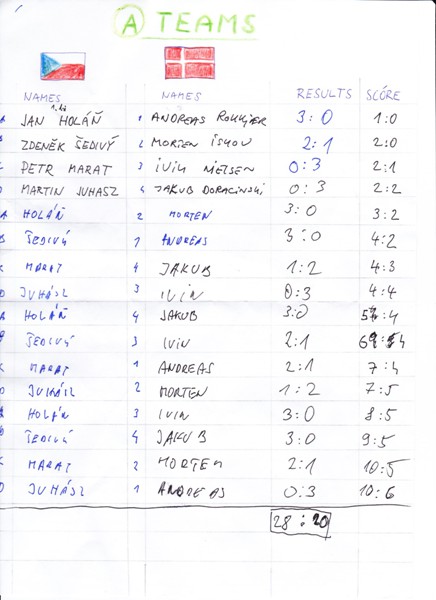 A TEAMS
NAMES NAMES RESULTS SCÓRE
JAN HOLÁŇ 1 ANDREAS 3:0 1:0
ZDENĚK ŠEDIVÝ 2 MORTEN 2:1 2:0
PETR MARAT 3 IVIN NIELSEN 0:3 2:1
D MARTIN JUHASZ 4 JAKUB DORACINSKI 0:3 2:2
A HOLÁŇ 2 MORTEN 3:0 3:2
B ŠEDIVÝ 1 ANDREAS 3:0 4:2
MARAT 4 JAKUB 1:2 4:3
D JUHÁSZ 3 IVIN 0:3 4:4
A HOLÁŇ 4 JAKUB 3:0 5:4
ŠEDIVÝ 3 IVIN 2:1 6:4
MARAT 1 ANDREAS 2:1 7:4
D JUHÁSZ 2 MORTEN 1:2 7:5
A HOLÁŇ 3 IVIN 3:0 8:5
ŠEDIVÝ 4 JAKUB 3:0 9:5
MARAT 2 MORTEN 2:1 10:5
D JUHÁSZ 1 ANDREAS 0:3 10:6
28:20